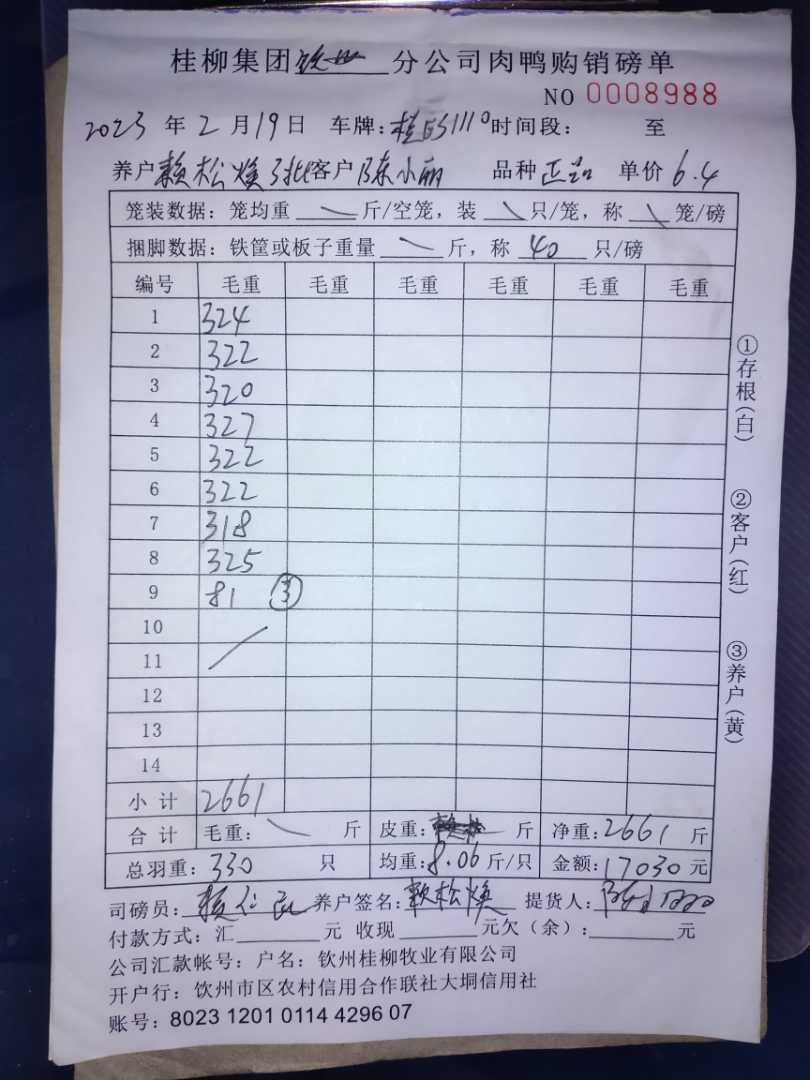 桂柳集团钦州分公司肉鸭购销磅单
NO 0008988
2023年2月19日 车牌:桂 1110时间段: 至
养户赖松焕 客户陈小丽 品种正品 单价6.4
笼装数据:笼均重 \ 斤/空笼,装 \ 只/笼,称 \ 笼/磅
捆脚数据:铁筐或板子重量 \ 斤,称 40 只/磅
编号 毛重 毛重 毛重 毛重 毛重 毛重
1 324
2 322
3 320
4 327
5 322
6 322
7 318
8 325
9 81 ③
10
11
12
13
14
小计 2661
合计 毛重: \ 斤 皮重: 斤 净重:2661斤
总羽重:330 只 均重:8.06斤/只 金额:17030元
司磅员:赖仁 养户签名:赖松焕 提货人:
付款方式:汇 元 收现 元欠(余): 元
公司汇款帐号:户名:钦州桂柳牧业有限公司
开户行:饮州市区农村信用合作联社大垌信用社
账号:8023 1201 0114 4296 07
①存根(白)
②客户(红)
③养户(黄)